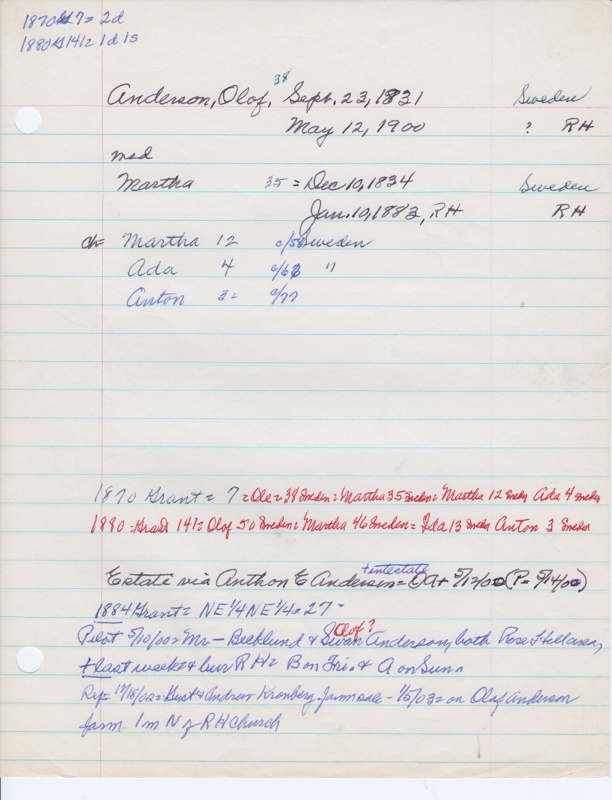 1870 Gt 7= 2d
1880 Gt 141= 1d 1s
38
Anderson, Olof, Sept. 23, 1831 Sweden
May 12, 1900 ? RH
med
Martha 35 = Dec 10, 1834 Sweden
Jan. 10, 1882, RH RH
ch= Martha 12 c/58 Sweden
Ada 4 c/66 "
Anton 3= c/77
1870 Grant = 7 = Ole = 38 Sweden = Martha 35 Sweden = Martha 12 Sweden Ada 4 Sweden
1880 = Grant 141= Olof 50 Sweden = Martha 46 Sweden = Ida 13 Sweden Anton 3 Sweden
+intestate
Estate via Anthon E Anderson = OA + 5/12/00 (P= 5/14/00)
1884 Grant = NE 1/4 NE 1/4 = 27 -
Olof?
Pilot 5/10/00= Mr - Becklund & Swan Anderson, both Rose
+ last week = & bur RH = B on Fri. & A on Sun.
Rep= = Gust & Andrew Kronberg - = on Olof Anderson
farm 1 m N of RH Church